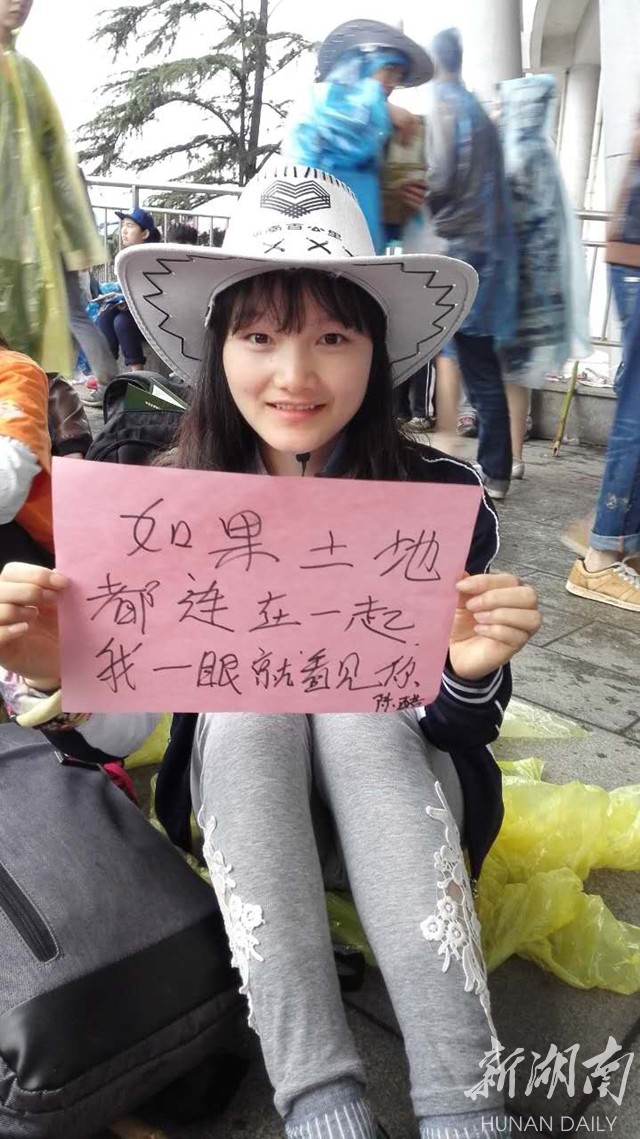 百公里
如果土地
都连在一起
我一眼就看见你
陈醋
新湖南
HUNAN DAILY